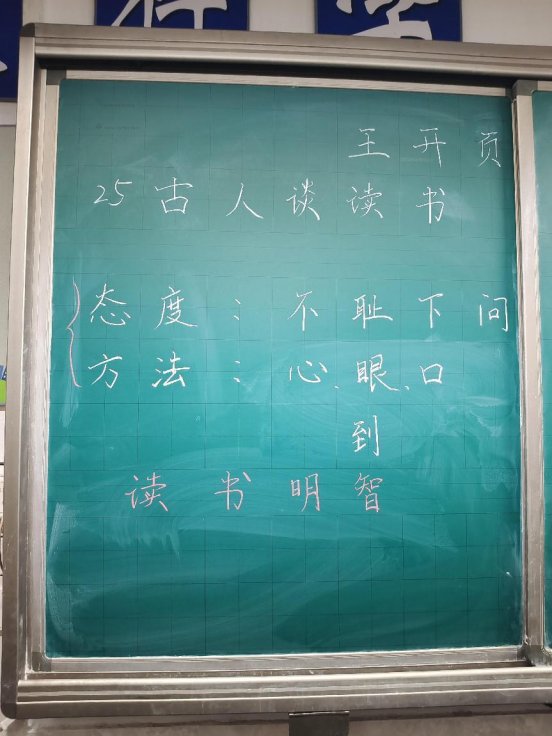 王开页
25 古人谈读书
态度：不耻下问
方法：心、眼、口
到
读书明智